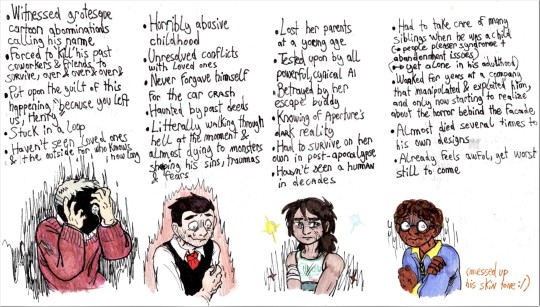 • Witnessed grotesque
cartoon abominations
calling his name
• Forced to kill his past
coworkers & friends to
survive, over & over & over &
• Put upon the guilt of this
happening "because you left
us, Henry"
• Stuck in a loop
• Haven't seen loved ones
& the outside for who knows
how long
• Horribly abusive
childhood
• Unresolved conflicts
with loved ones
• Never forgave himself
for the car crash
• Haunted by past deeds
• Litterally walking through
hell at the moment &
almost dying to monsters
shaping his sins, traumas
& fears
• Lost her parents
at a young age
• Tested upon by all
powerful, cynical AI
• Betrayed by her
escape buddy
• Knowing of Aperture's
dark reality
• Had to survive on her
own in post-apocalypse
• Hasn't seen a human
in decades
• Had to take care of many
siblings when he was a child
(→ people pleaser syndrome +
abandonment issues
(→ yet alone in his adulthood)
• Worked for years at a company
that manipulated & exploited him,
and only now starting to realize
about the horror behind the facade
• Almost died several times to
his own designs
• Already feels awful, yet worst
still to come
(messed up
his skin tone :/)